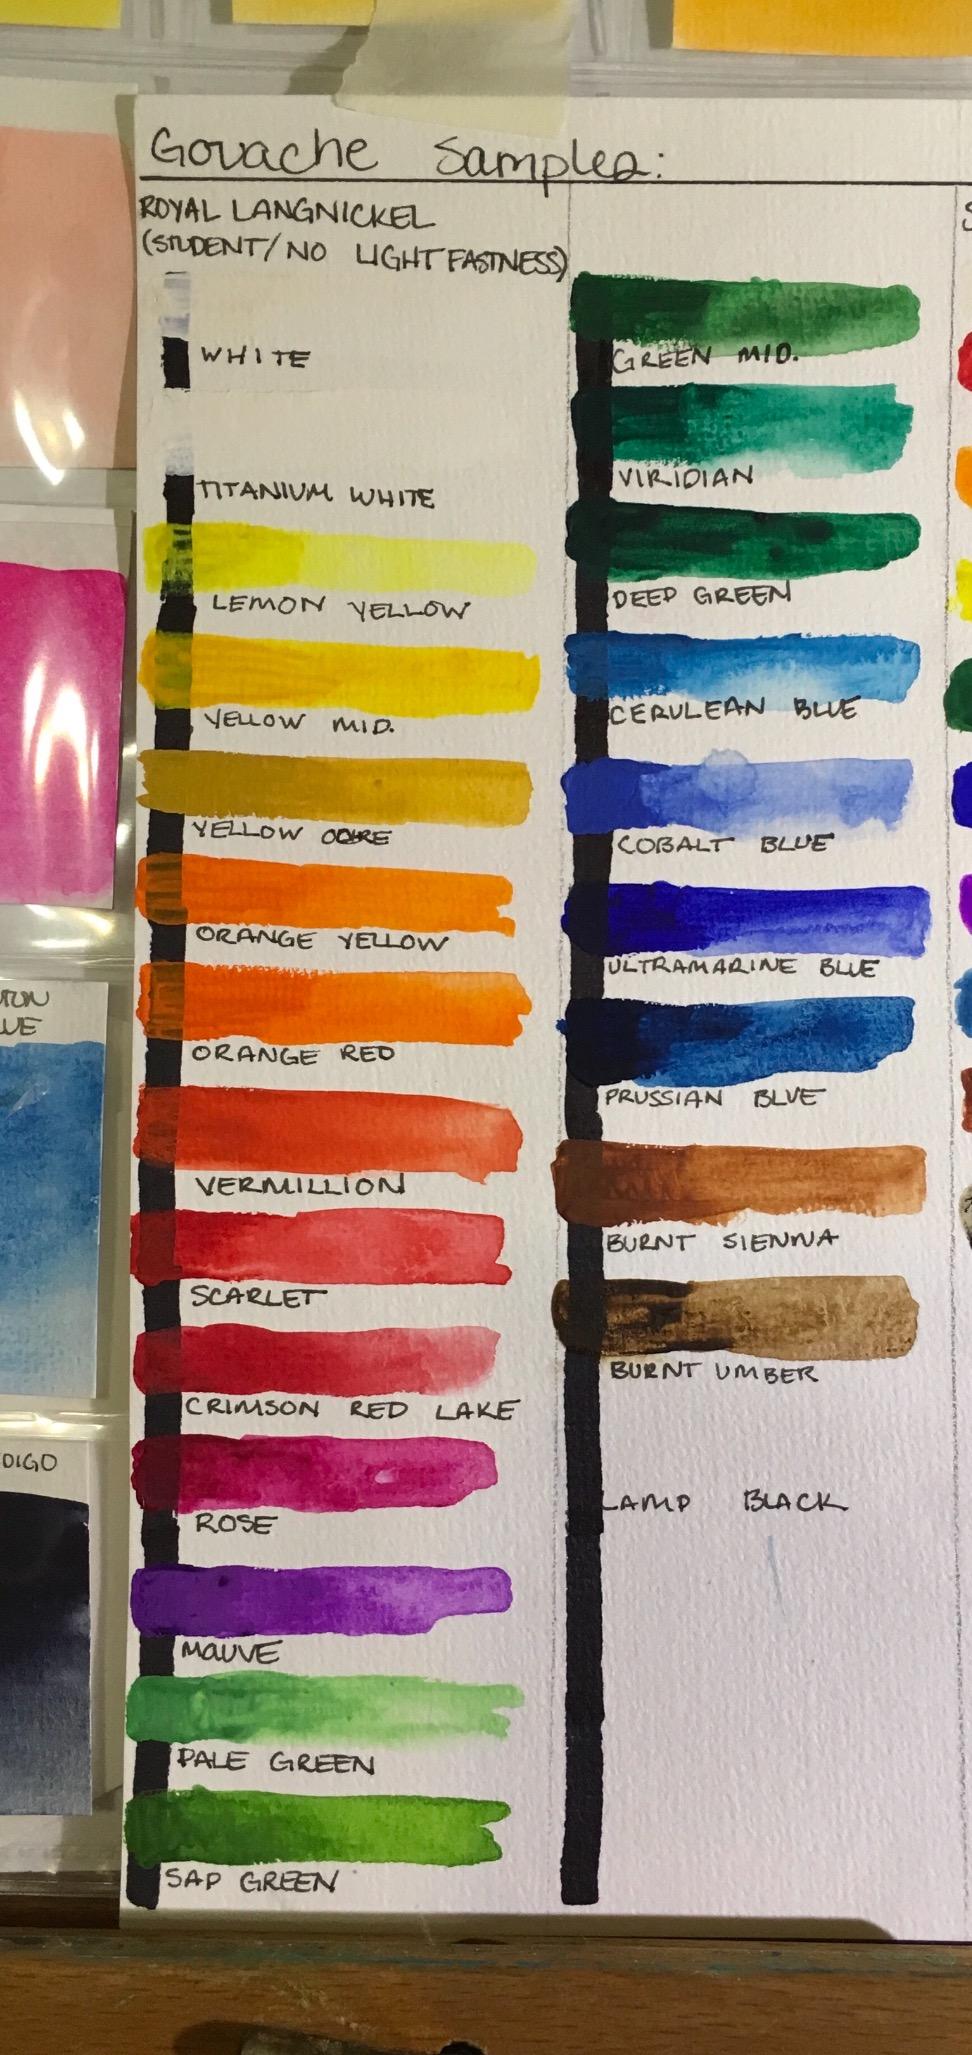 Gouache Samples:
ROYAL LANGNICKEL
(STUDENT/NO LIGHTFASTNESS)
WHITE
TITANIUM WHITE
LEMON YELLOW
YELLOW MID.
YELLOW OCHRE
ORANGE YELLOW
ORANGE RED
VERMILLION
SCARLET
CRIMSON RED LAKE
ROSE
MAUVE
PALE GREEN
SAP GREEN
GREEN MID.
VIRIDIAN
DEEP GREEN
CERULEAN BLUE
COBALT BLUE
ULTRAMARINE BLUE
PRUSSIAN BLUE
BURNT SIENNA
BURNT UMBER
LAMP BLACK